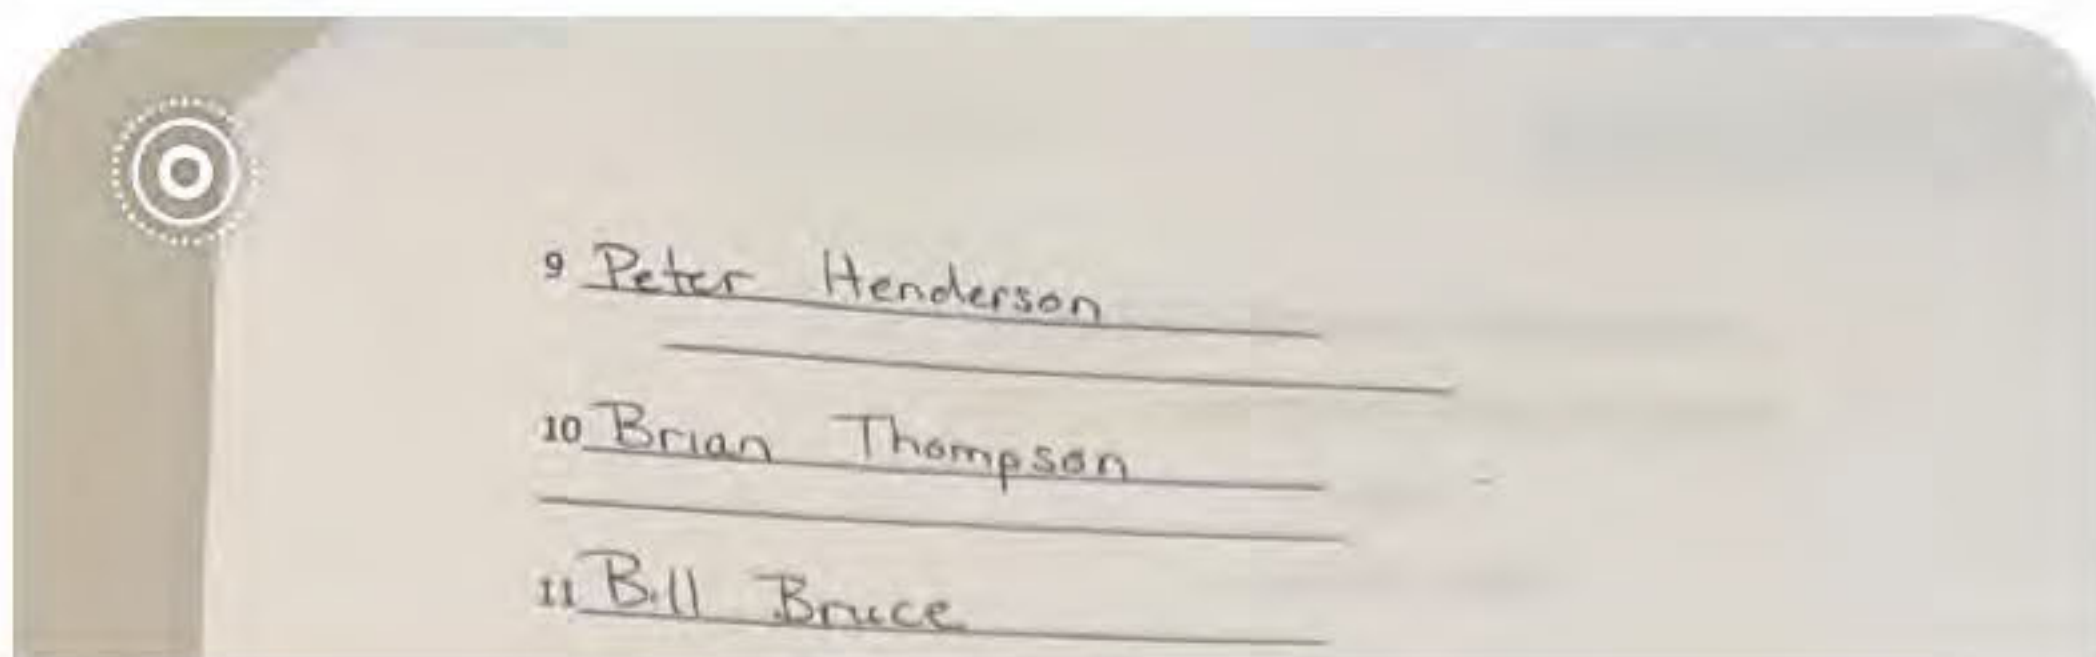 9 Peter Henderson
10 Brian Thompson
11 Bill Bruce